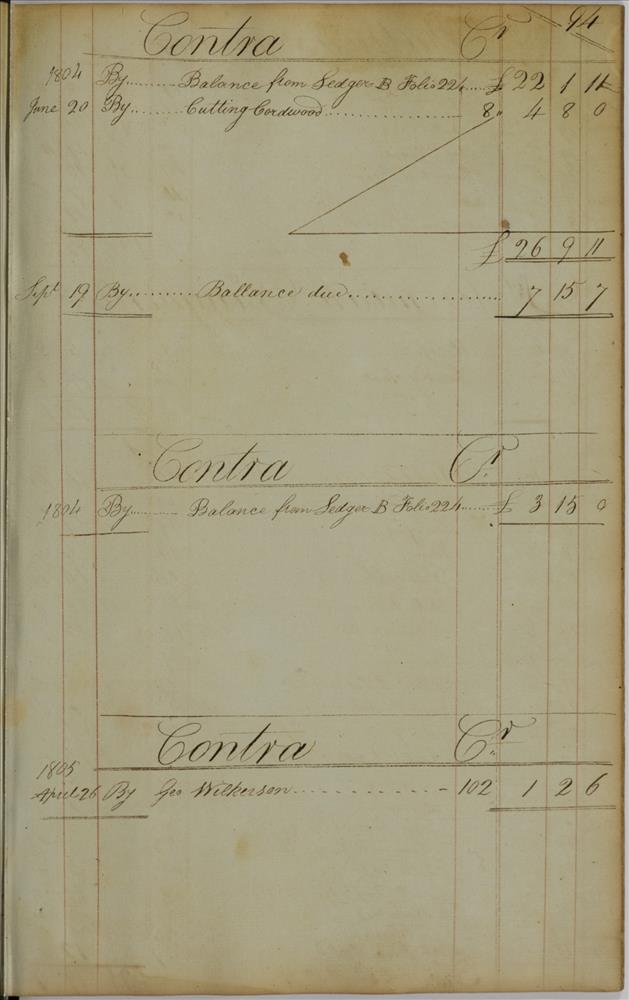 94
Contra Cr
1804 By........ Balance from Ledger B Folio 224...... £ 22 1 11
June 20 By....... Cutting Cordwood.................. 8 " 4 8 0
£ 26 9 11
Sept 19 By.......... Ballance due..................... 7 15 7
Contra Cr.
1804 By........ Balance from Ledger B Folio 224....... £ 3 15 0
Contra Cr
1805
April 26 By Geo Wilkerson............. 102 1 2 6